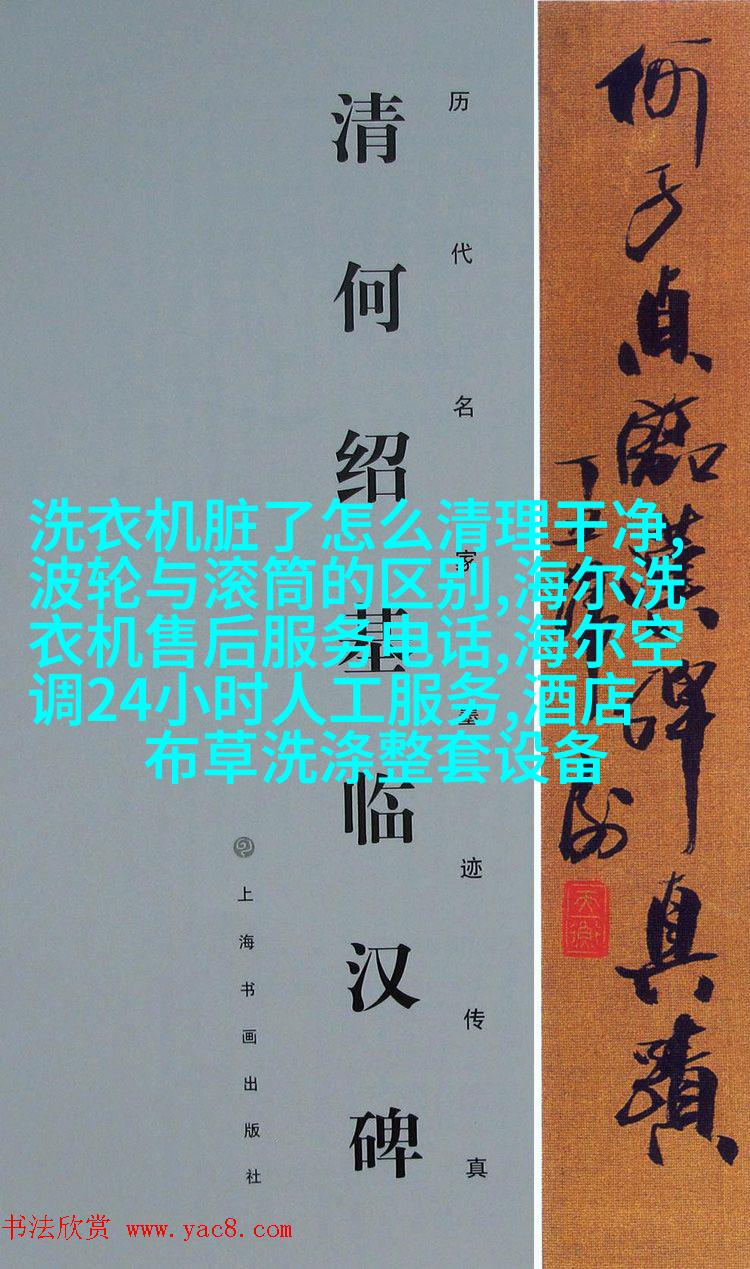 何子貞臨漢碑真蹟
天衡
历代名家墨迹传真
清何绍基临汉碑
上海书画出版社
洗衣机脏了怎么清理干净,
波轮与滚筒的区别,海尔洗
衣机售后服务电话,海尔空
调24小时人工服务,酒店
布草洗涤整套设备
书法欣赏 www.yac8.com